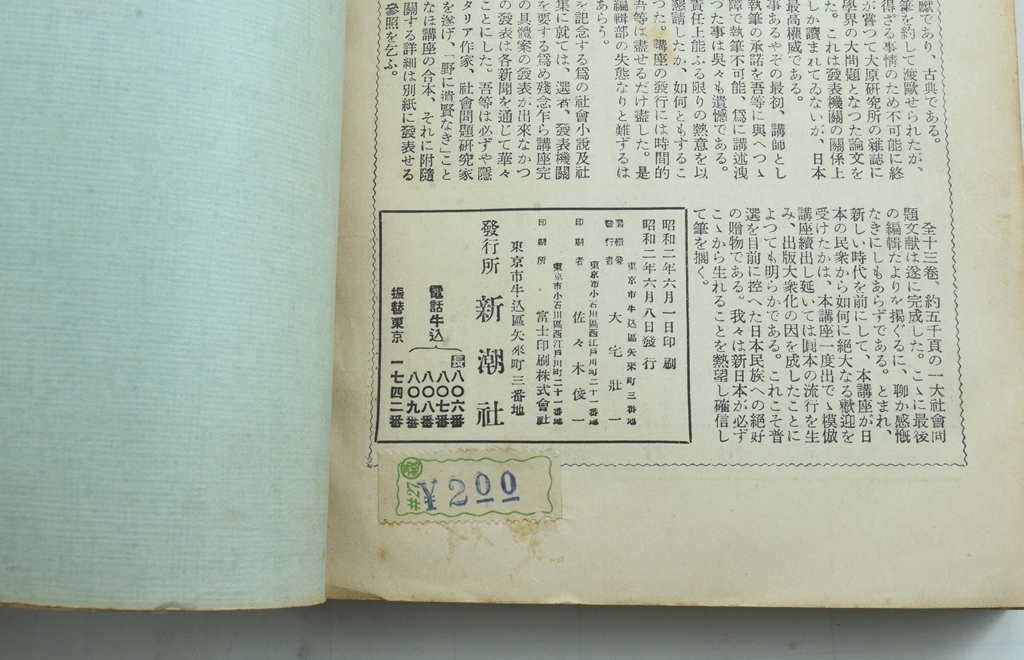 獻であり、古典である。
筆を約して渡歐せられたが、
得ざる事情のため不可能に終
が嘗つて大原研究所の雜誌に
學界の大問題となつた論文を
しか讀まれてゐないが、日本
た。これは發表機關の關係上
最高權威である。
事あるやその最初、講師とし
執筆の承諾を吾等に與へつゝ
障で執筆不可能、爲に講述洩
つた事は吳々も遺憾である。
責任上能ふる限りの熱意を以
懇請したが、如何ともするこ
つた。講座の發行には時間的
吾等は盡せるだけ盡した。是
編輯部の失態なりと難ずるは
あらう。
を記念する爲の社會小說及社
集に就ては、選者、發表機關
を要する爲め殘念乍ら講座完
の具體案の發表が出來なかつ
の發表は各新聞を通じて華々
ことにした。吾等は必ずや隱
タリア作家、社會問題硏究家
を遂げ、「野に遺賢なき」こと
なほ講座の合本、それに附隨
關する詳細は別紙に發表せる
參照を乞ふ。
全十三卷、約五千頁の一大社會問
題文獻は遂に完成した。こゝに最後
の編輯だよりを揭ぐるに、聊か感慨
なきにしもあらずである。とまれ、
新しい時代を前にして、本講座が日
本の民衆から如何に絕大なる歡迎を
受けたかは、本講座一度出でゝ模倣
講座續出し延いては圓本の流行を生
み、出版大衆化の因を成したことに
よつても明らかである。これこそ普
選を目前に控へた日本民族への絕好
の贈物である。我々は新日本が必ず
こゝから生れることを熱望し確信し
て筆を擱く。
昭和二年六月一日印刷
昭和二年六月八日發行
東京市牛込區矢來町三番地
編輯兼
發行者 大宅壯一
東京市小石川區西江戶川町二十一番地
印刷者 佐々木俊一
東京市小石川區西江戶川町二十一番地
印刷所 富士印刷株式會社
東京市牛込區矢來町三番地
發行所 新潮社
電話牛込
長八〇六番
八〇七番
八〇八番
八〇九番
振替東京 一七四二番
#27
¥200